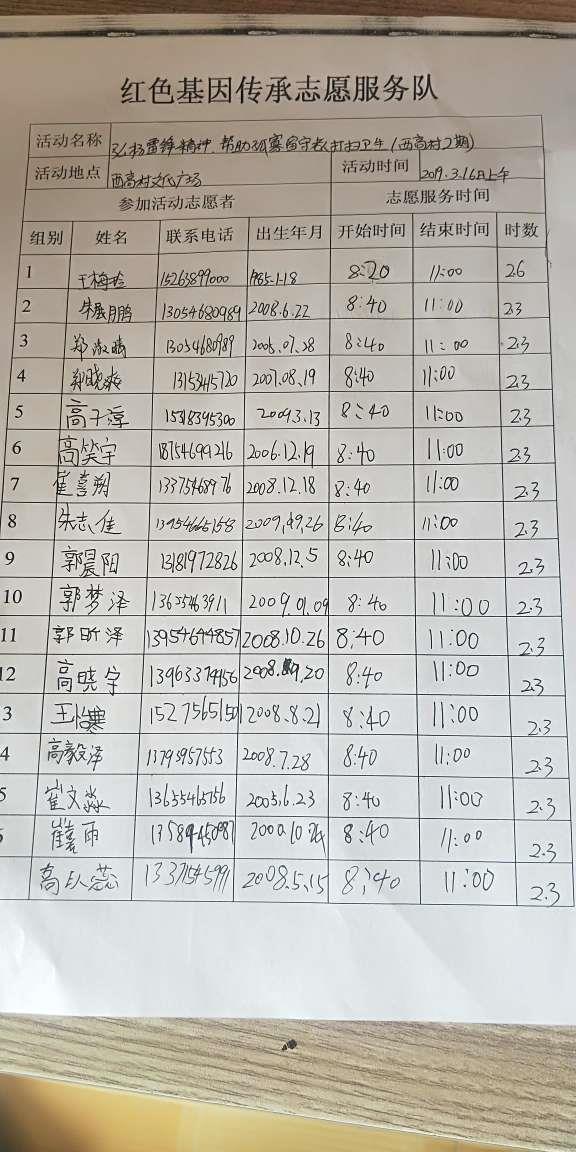 红色基因传承志愿服务队
活动名称 弘扬雷锋精神、帮助孤寡留守老人打扫卫生(西高村2期)
活动地点 西高村文化广场 活动时间 2019.3.16日上午
参加活动志愿者 志愿服务时间
组别 姓名 联系电话 出生年月 开始时间 结束时间 时数
1 王梅 15263899000 1985.1.18 8:20 11:00 2.6
2 朱展鹏 13054680989 2008.6.22 8:40 11:00 2.3
3 郑淑 13054680989 2005.07.28 8:40 11:00 2.3
4 郑晓 13153415720 2007.08.19 8:40 11:00 2.3
5 高子淳 15318395300 2009.3.13 8:40 11:00 2.3
6 高笑宇 18754699216 2006.12.19 8:40 11:00 2.3
7 崔喜朔 13375468976 2008.12.18 8:40 11:00 2.3
8 朱志佳 13954665158 2009.09.26 8:40 11:00 2.3
9 郭晨阳 13181972826 2008.12.5 8:40 11:00 2.3
10 郭梦泽 13655463911 2009.01.09 8:40 11:00 2.3
11 郭昕泽 13954644857 2008.10.26 8:40 11:00 2.3
12 高晓宇 13963374156 8:40 11:00 2.3
3 王 15275651501 2008.8.21 8:40 11:00 2.3
4 高毅泽 13793957553 2008.7.28 8:40 11:00 2.3
5 崔文淼 13655465756 2005.6.23 8:40 11:00 2.3
崔 雨 8:40 11:00 2.3
高 蕊 2008.5.15 8:40 11:00 2.3